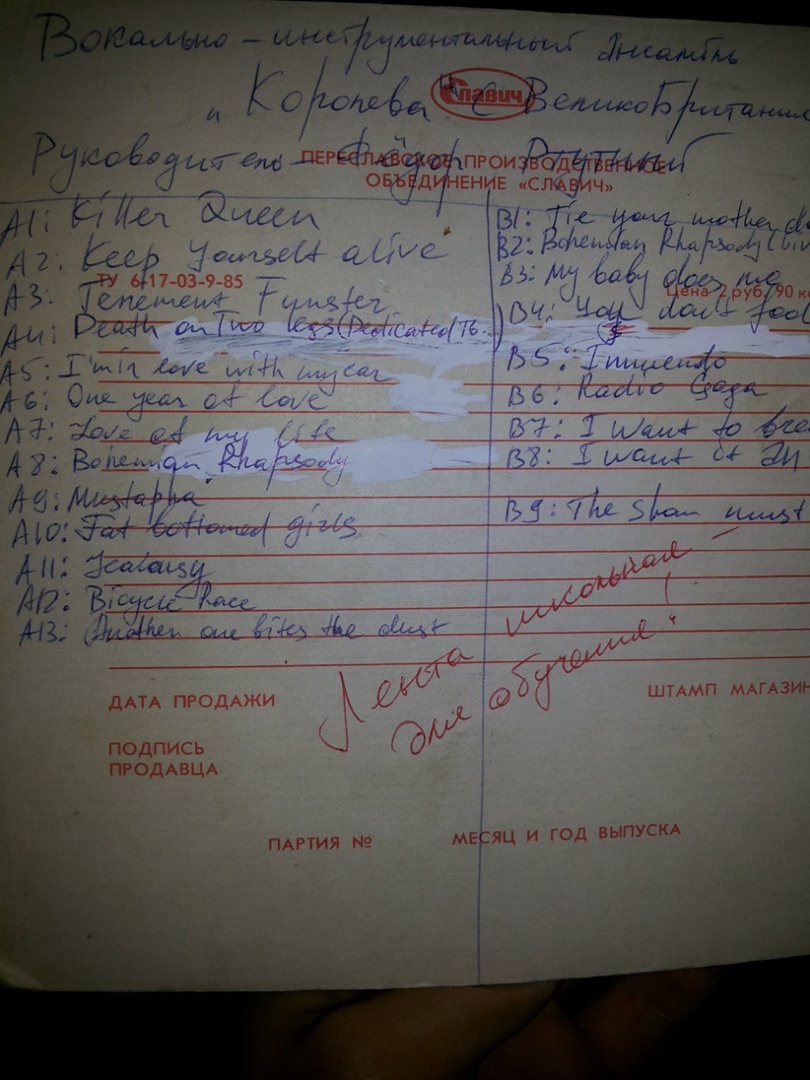 Вокально-инструментальный Ансамбль
„Королева" с Великобритании
Славич
Руководитель - Фёдор Ртутный
ПЕРЕСЛАВСКОЕ ПРОИЗВОДСТВЕННОЕ
ОБЪЕДИНЕНИЕ «СЛАВИЧ»
ТУ 6-17-03-9-85
Цена 2 руб. 90 ко
A1: Killer Queen
A2: Keep Yourself alive
A3: Tenement Funster
A4: Death on Two legs (Dedicated To...)
A5: I'm in love with my car
A6: One year of love
A7: Love of my life
A8: Bohemian Rhapsody
A9: Mustapha
A10: Fat bottomed girls
A11: Jealousy
A12: Bicycle Race
A13: Another one bites the dust
B1: Tie your mother do
B2: Bohemian Rhapsody (liv
B3: My baby does me
B4: You don't fool
B5: Innuendo
B6: Radio Gaga
B7: I Want to brea
B8: I want it
B9: The Show must
Лента школьная -
для обучения!
ДАТА ПРОДАЖИ
ШТАМП МАГАЗИН
ПОДПИСЬ
ПРОДАВЦА
ПАРТИЯ №
МЕСЯЦ И ГОД ВЫПУСКА